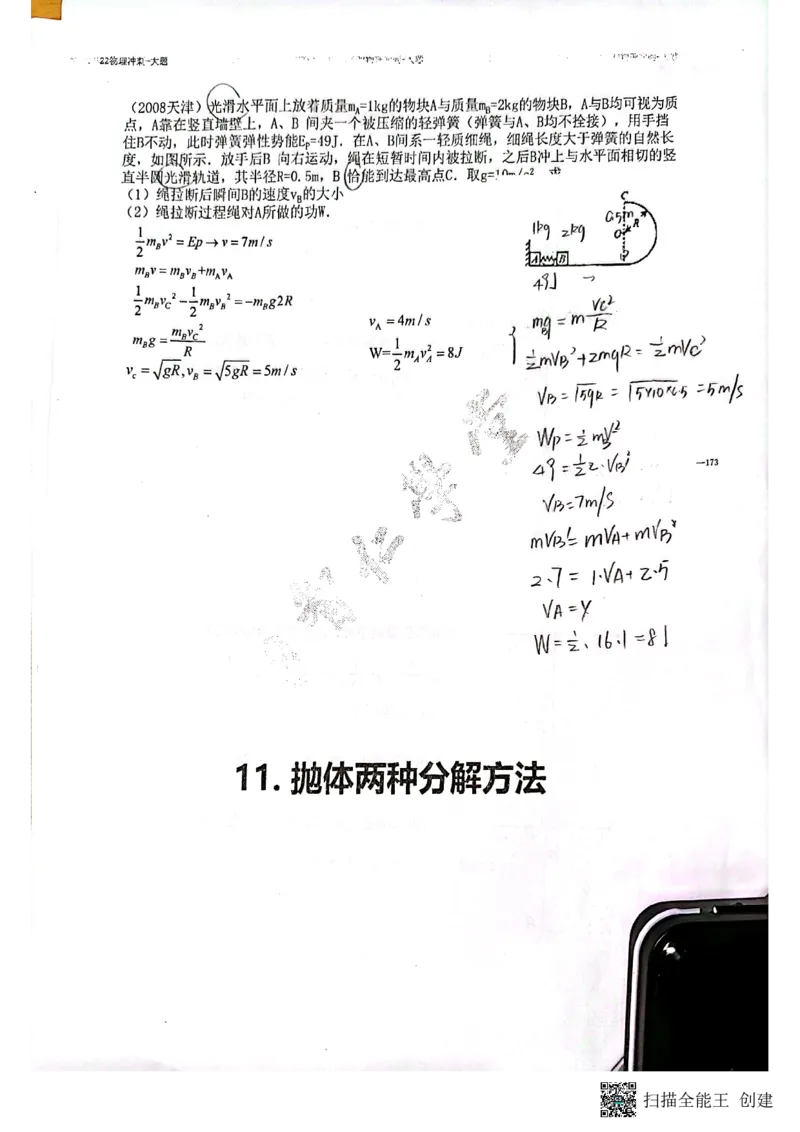 22物理冲刺-大题
(2008天津)光滑水平面上放着质量m_A=1kg的物块A与质量m_B=2kg的物块B,A与B均可视为质
点,A靠在竖直墙壁上,A、B 间夹一个被压缩的轻弹簧(弹簧与A、B均不拴接),用手挡
住B不动,此时弹簧弹性势能E_P=49J. 在A、B间系一轻质细绳,细绳长度大于弹簧的自然长
度,如图所示. 放手后B 向右运动,绳在短暂时间内被拉断,之后B冲上与水平面相切的竖
直半圆光滑轨道,其半径R=0.5m, B 恰能到达最高点C. 取g=10m/s²,求
(1)绳拉断后瞬间B的速度v_B的大小
(2)绳拉断过程绳对A所做的功W.
1/2 m_B v² = Ep → v = 7m/s
m_B v = m_B v_B + m_A v_A
1/2 m_B v_C² - 1/2 m_B v_B² = -m_B g2R
m_B g = m_B v_C² / R
v_c = √gR, v_B = √5gR = 5m/s
v_A = 4m/s
W= 1/2 m_A v_A² = 8J
C
0.5m
R
O
1kg 2kg
A B
49J →
mg = m VC²/R
1/2 mVB² + 2mgR = 1/2 mVC²
VB = √5gR = √5×10×0.5 = 5m/s
Wp = 1/2 mV²
49 = 1/2 2·VB²
VB=7m/s
mVB' = mVA + mVB"
2·7 = 1·VA + 2·5
VA = 4
W = 1/2 · 16·1 = 8J
—173
11. 抛体两种分解方法
扫描全能王 创建